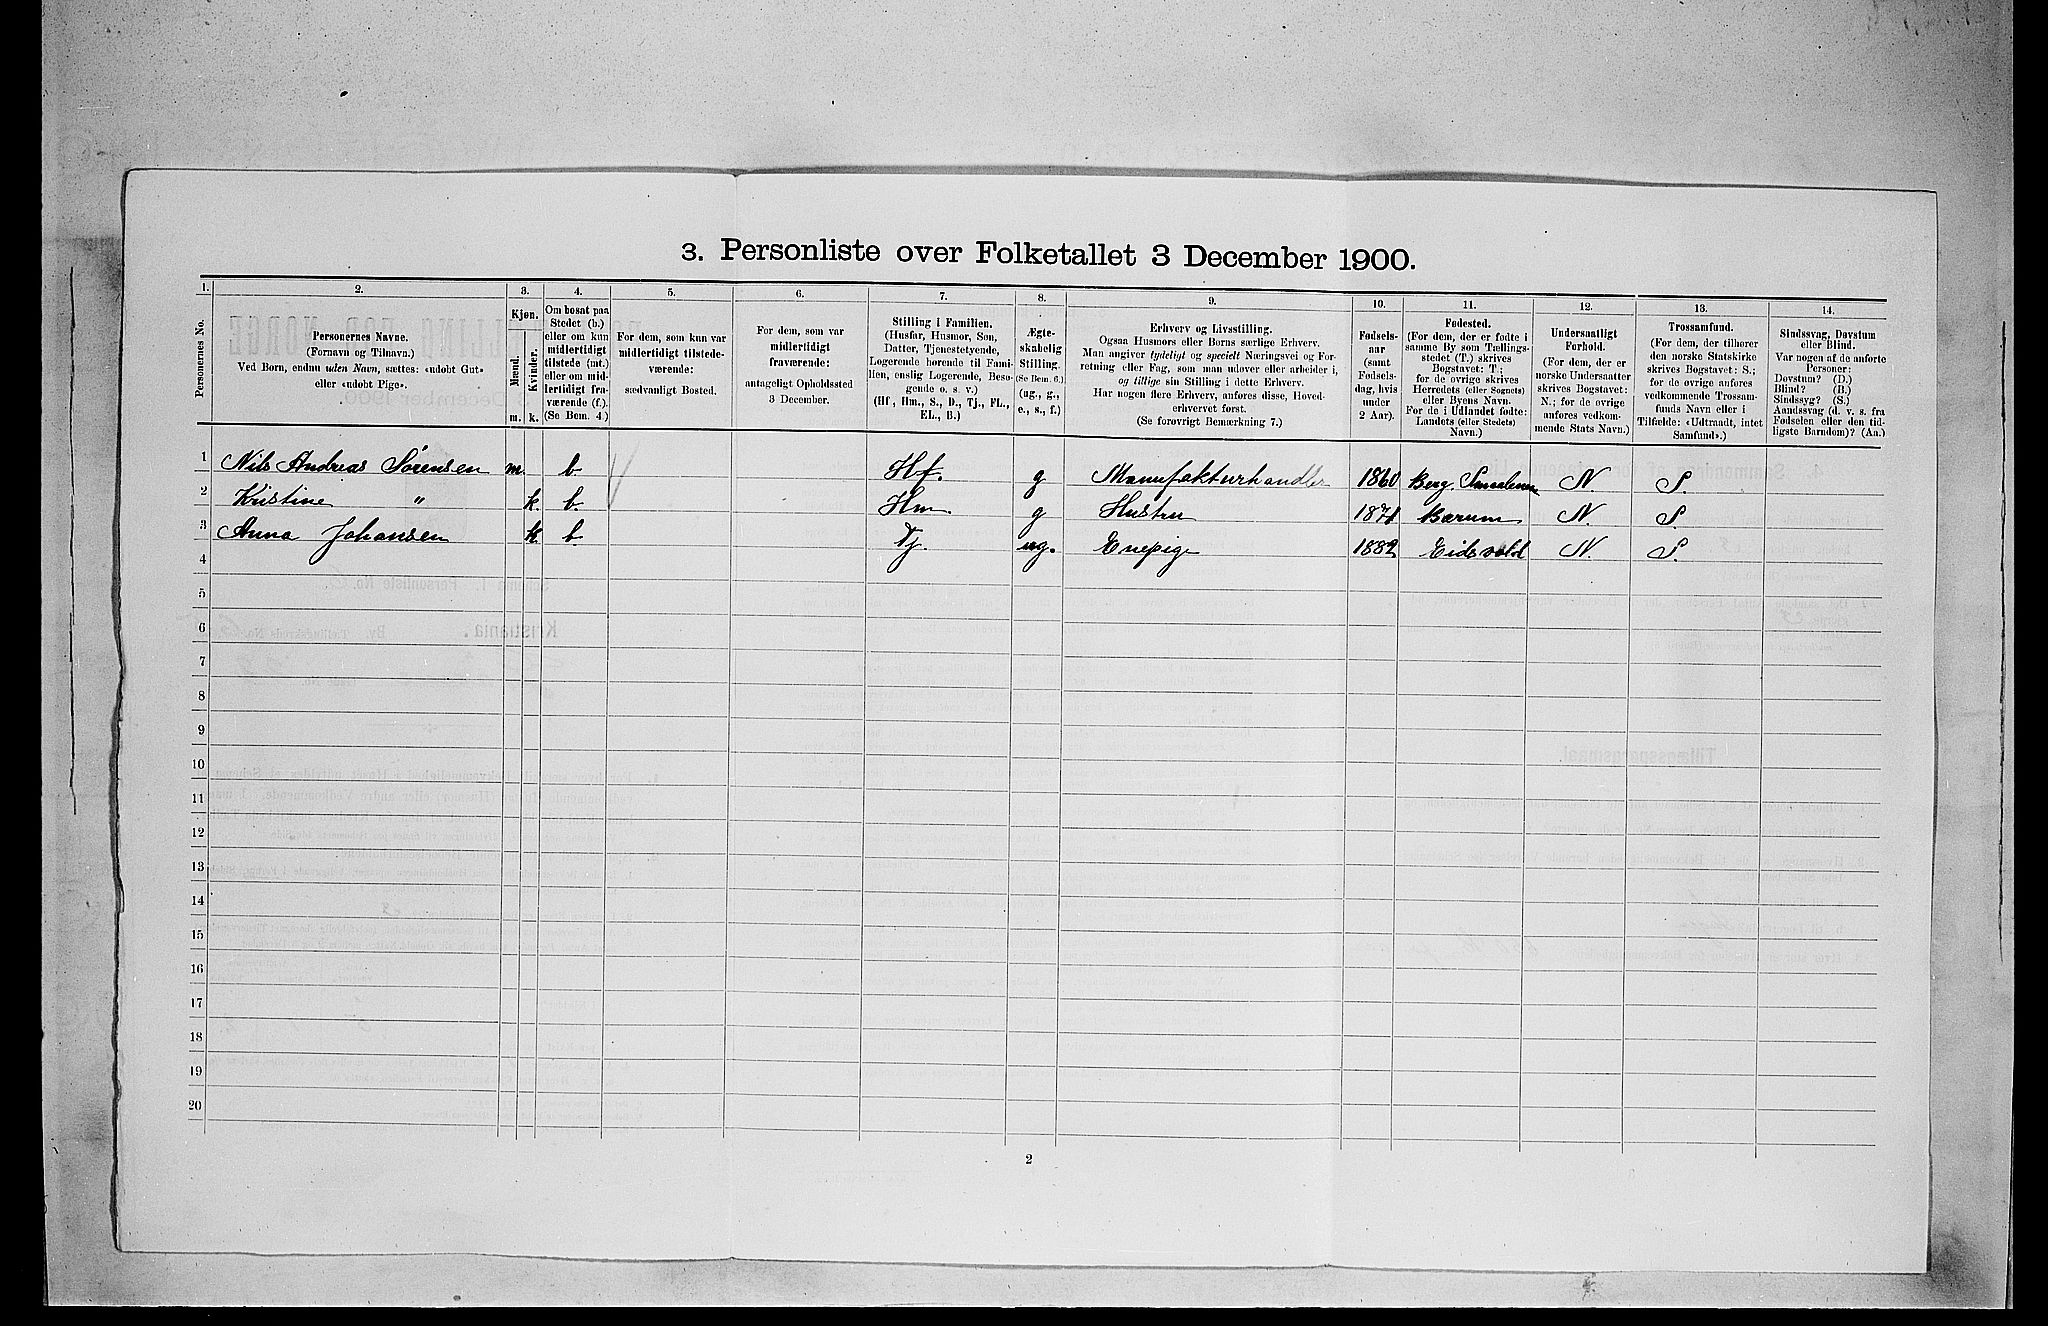 3. Personliste over Folketallet 3 December 1900.
1. 2. 3. 4. 5. 6. 7. 8. 9. 10. 11. 12. 13. 14.
Personernes No.
Personernes Navne.
(Fornavn og Tilnavn.)
Ved Børn, endnu uden Navn, sættes: «udøbt Gut»
eller «udøbt Pige».
Kjøn.
Mænd.
Kvinder.
m. k.
Om bosat paa
Stedet (b.)
eller om kun
midlertidigt
tilstede (mt.)
eller om mid-
lertidigt fra-
værende (f.)
(Se Bem. 4.)
For dem, som kun var
midlertidigt tilstede-
værende:
sædvanligt Bosted.
For dem, som var
midlertidigt
fraværende:
antageligt Opholdssted
3 December.
Stilling i Familien.
(Husfar, Husmor, Søn,
Datter, Tjenestetyende,
Logerende hørende til Fami-
lien, enslig Logerende, Besø-
gende o. s. v.)
(Hf, Hm., S., D., Tj., FL.,
EL., B.)
Ægte-
skabelig
Stilling.
(Se Bem. 6.)
(ug., g.,
e., s., f.)
Erhverv og Livsstilling.
Ogsaa Husmors eller Børns særlige Erhverv.
Man angiver tydeligt og specielt Næringsvei og For-
retning eller Fag, som man udøver eller arbeider i,
og tillige sin Stilling i dette Erhverv.
Har nogen flere Erhverv, anføres disse, Hoved-
erhvervet først.
(Se forøvrigt Bemærkning 7.)
Fødsels-
aar
(samt
Fødsels-
dag, hvis
under
2 Aar).
Fødested.
(For dem, der er fødte i
samme By som Tællings-
stedet (T.) skrives
Bogstavet: T.;
for de øvrige skrives
Herredets (eller Sognets)
eller Byens Navn.
For de i Udlandet fødte:
Landets (eller Stedets)
Navn.)
Undersaatligt
Forhold.
(For dem, der er
norske Undersaatter
skrives Bogstavet:
N.; for de øvrige
anføres vedkom-
mende Stats Navn.)
Trossamfund.
(For dem, der tilhører
den norske Statskirke
skrives Bogstavet: S.;
for de øvrige anføres
vedkommende Trossam-
funds Navn eller i
Tilfælde: «Udtraadt, intet
Samfund».)
Sindssvag, Døvstum
eller Blind.
Var nogen af de anførte
Personer:
Døvstum? (D.)
Blind? (B.)
Sindssyg? (S.)
Aandssvag (d. v. s. fra
Fødselen eller den tid-
ligste Barndom)? (Aa.)
1 Nils Andreas Sørensen m b. Hf. g Manufakturhandler 1860 Berg. N. S.
2 Kristine " k b. Hm. g Hustru 1871 Bærum N. S.
3 Anna Johansen k b. Tj. ug. Enepige 1882 Eidsvold N. S.
4
5
6
7
8
9
10
11
12
13
14
15
16
17
18
19
20
2